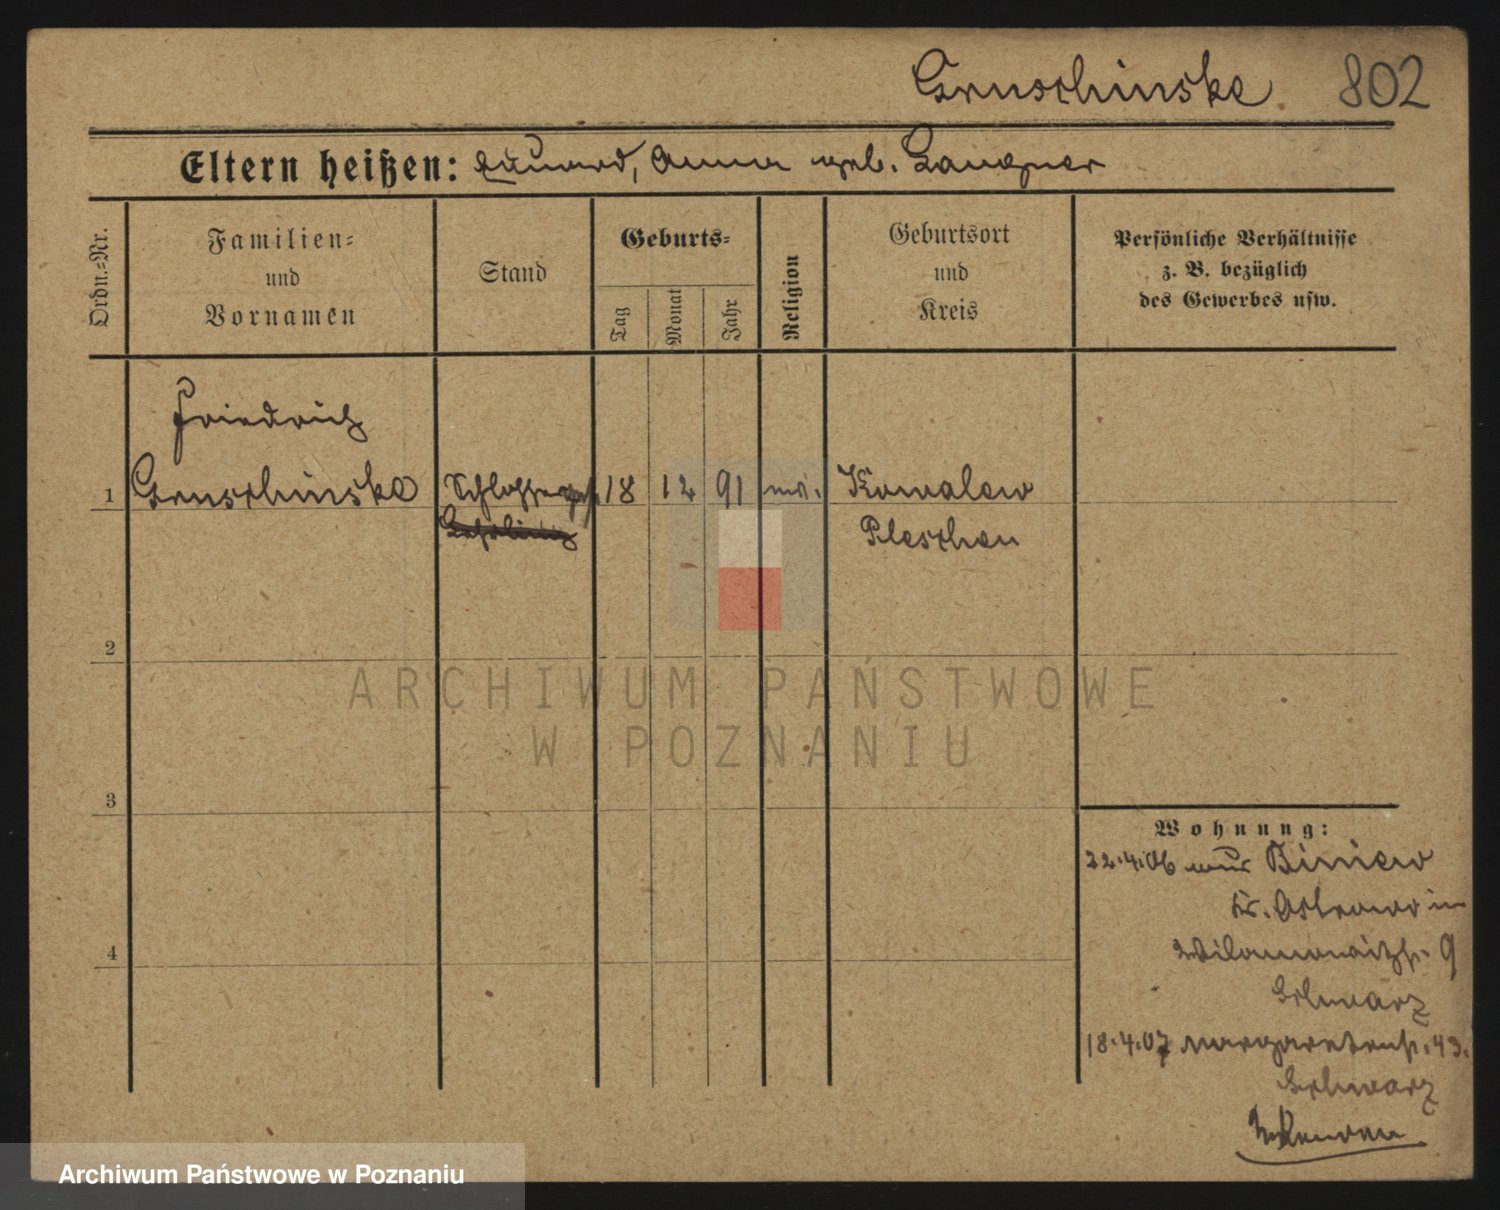 Gruschinske 802
Eltern heißen: Eduard, Anna geb. Langner
Ordn.-Nr.
Familien-
und
Vornamen
Stand
Geburts-
Tag
Monat
Jahr
Religion
Geburtsort
und
Kreis
Persönliche Verhältnisse
z. B. bezüglich
des Gewerbes usw.
Friedrich
1 Gruschinske Schlosserges. 18 12 91 Kowalew
Lehrling Pleschen
2
3
4
ARCHIWUM PAŃSTWOWE
W POZNANIU
Wohnung:
22.4.06 aus Biniew
Kr. Ostrowo in
Wilamowitzstr. 9
Schwarz
18.4.07 Margaretenstr. 43.
Schwarz
Archiwum Państwowe w Poznaniu